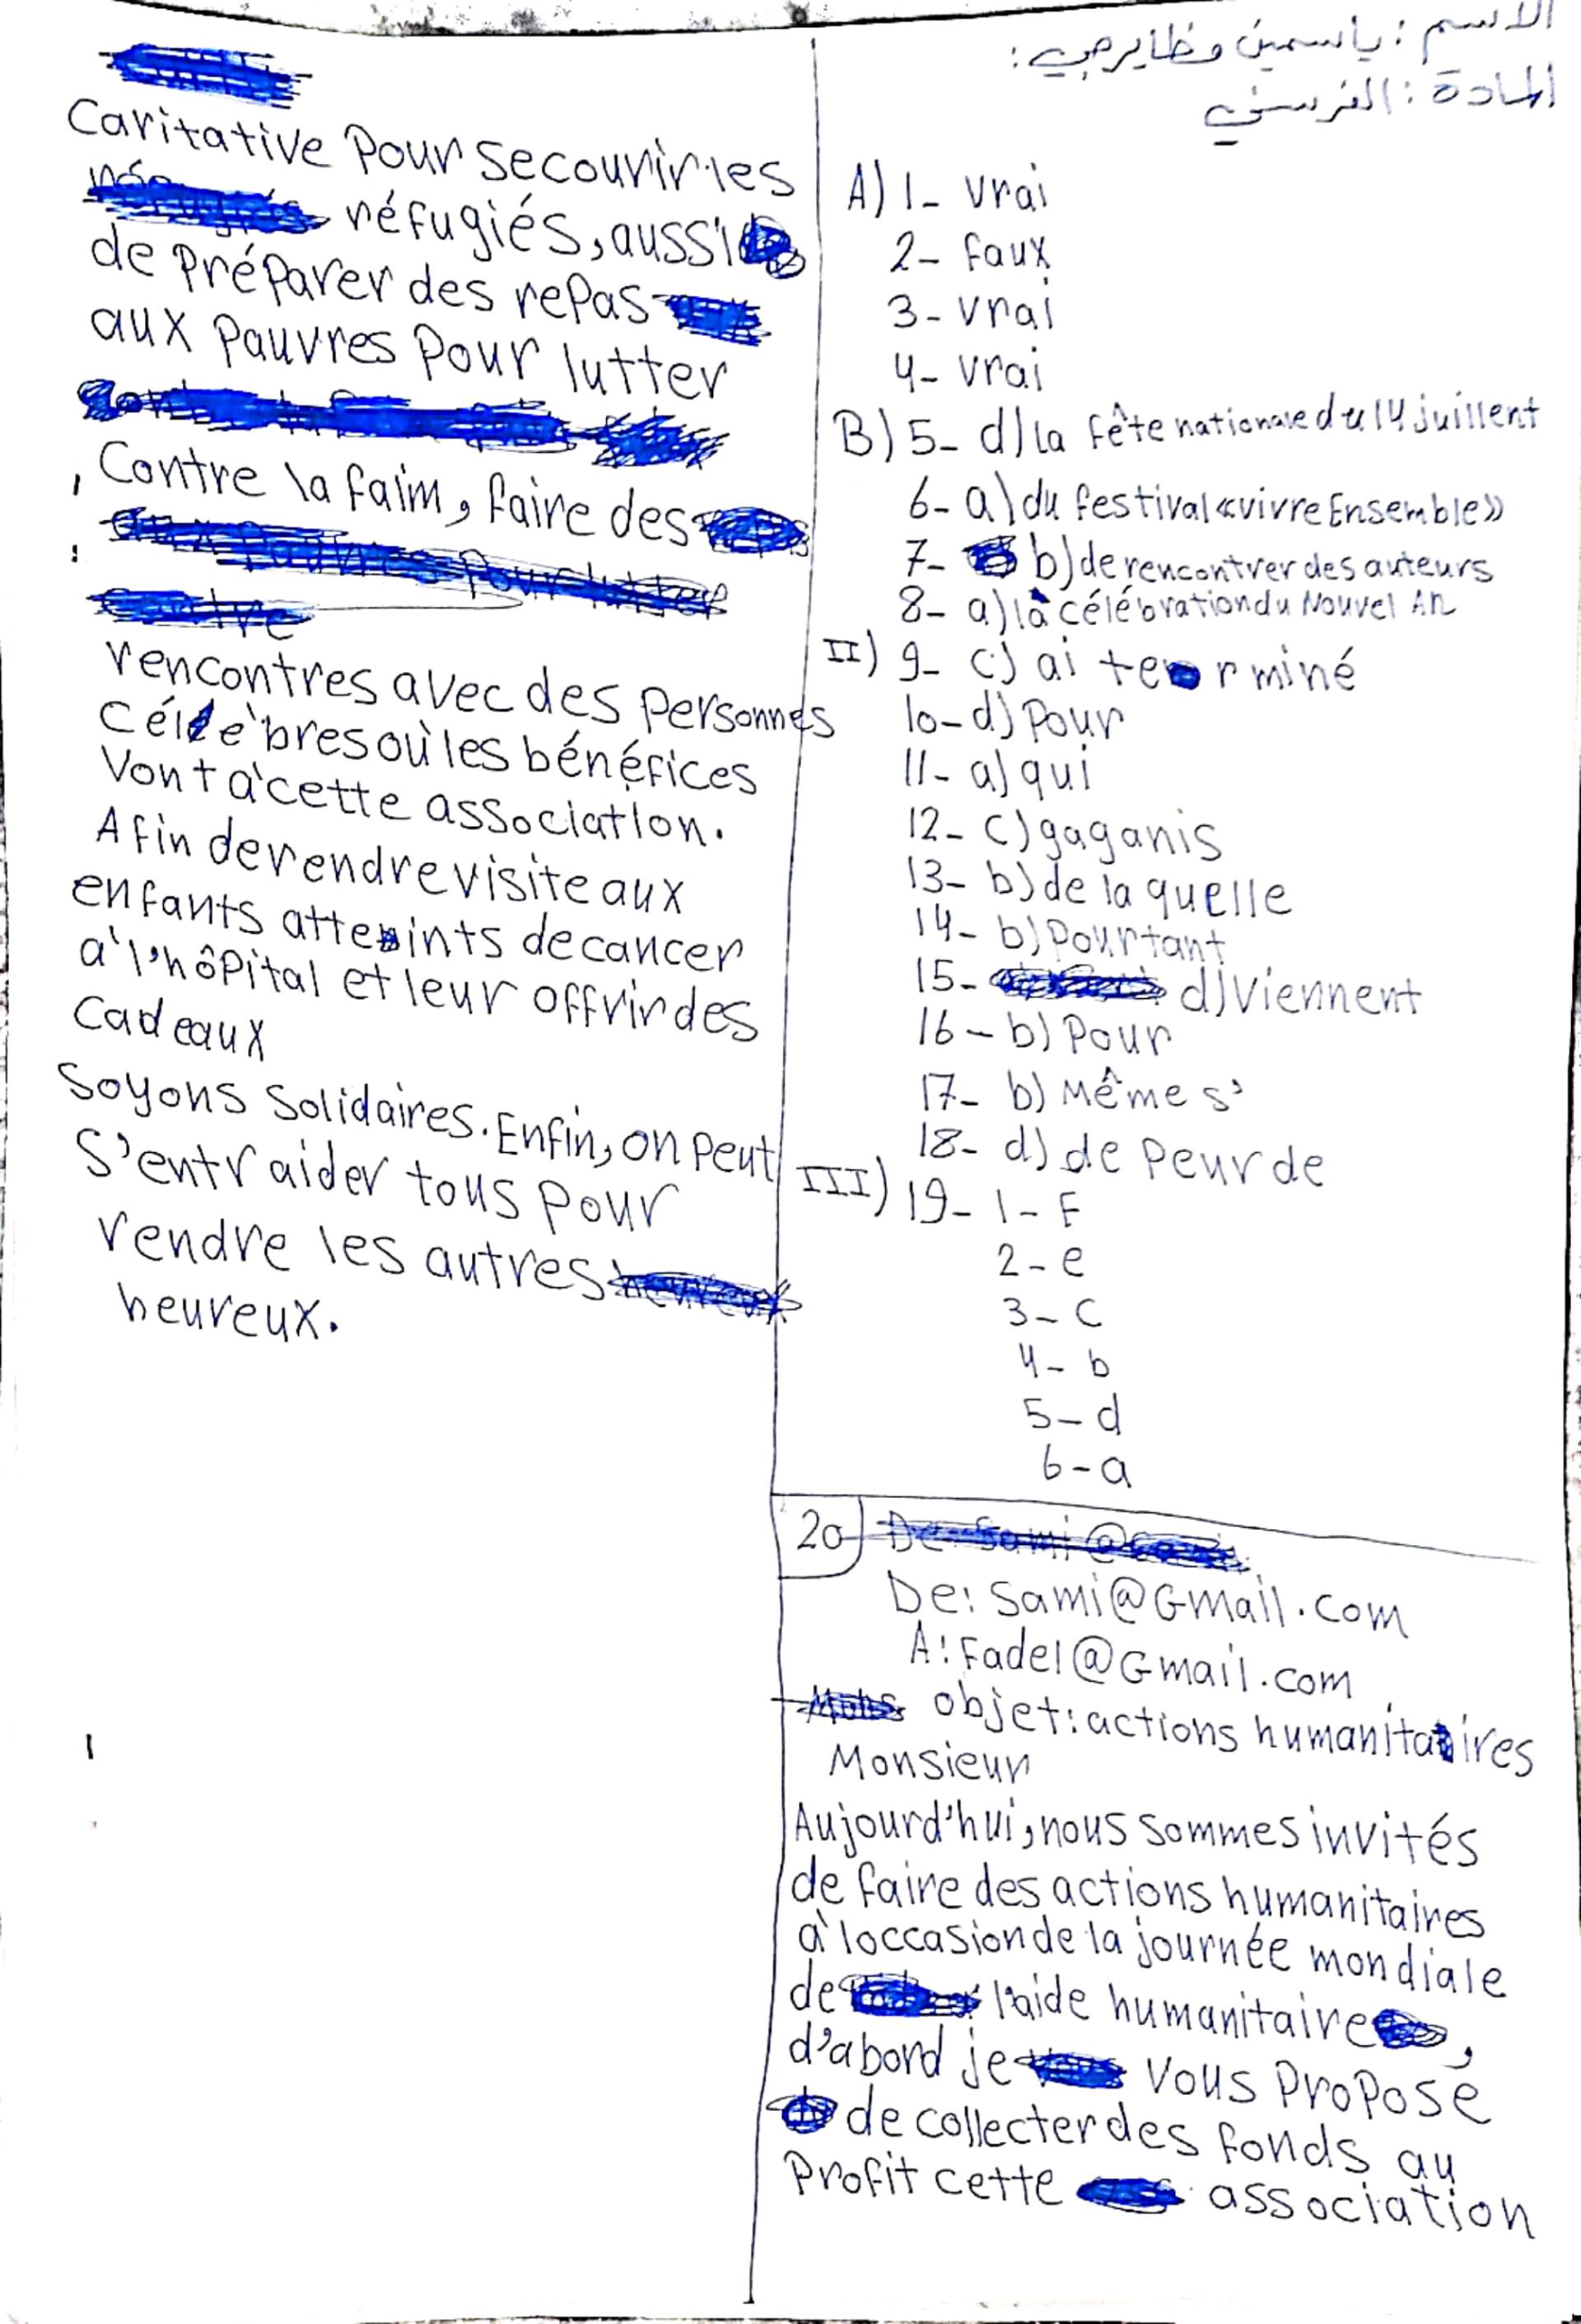 الاسم: ياسمين وظايرجي:
المادة: الفرسني
A) 1- vrai
2- Faux
3- vrai
4- vrai
B) 5- d) la fête nationale du 14 juillent
6- a) du festival «vivre Ensemble»
7- b) de rencontrer des auteurs
8- a) la célébration du Nouvel An
II) 9- c) ai terminé
10- d) Pour
11- a) qui
12- c) gaganis
13- b) de la quelle
14- b) Pourtant
15- d) Viennent
16- b) Pour
17- b) Même s'
18- d) de Peur de
III) 19- 1- F
2- e
3- c
4- b
5- d
6- a
20) De: Sami@Gmail.com
A: Fadel@Gmail.com
objet: actions humanitaires
Monsieur
Aujourd'hui, nous sommes invités
de faire des actions humanitaires
à loccasion de la journée mondiale
de l'aide humanitaire,
d'abord je vous propose
de collecter des fonds au
Profit cette association
Caritative Pour secourir les
réfugiés, aussi
de préparer des repas
aux Pauvres Pour lutter
Contre la faim, faire des
rencontres avec des Personnes
Célèbres où les bénéfices
Vont à cette association.
Afin de rendre visite aux
enfants atteints de cancer
à l'hôpital et leur offrir des
Cadeaux
Soyons Solidaires. Enfin, on peut
S'entraider tous pour
rendre les autres
heureux.